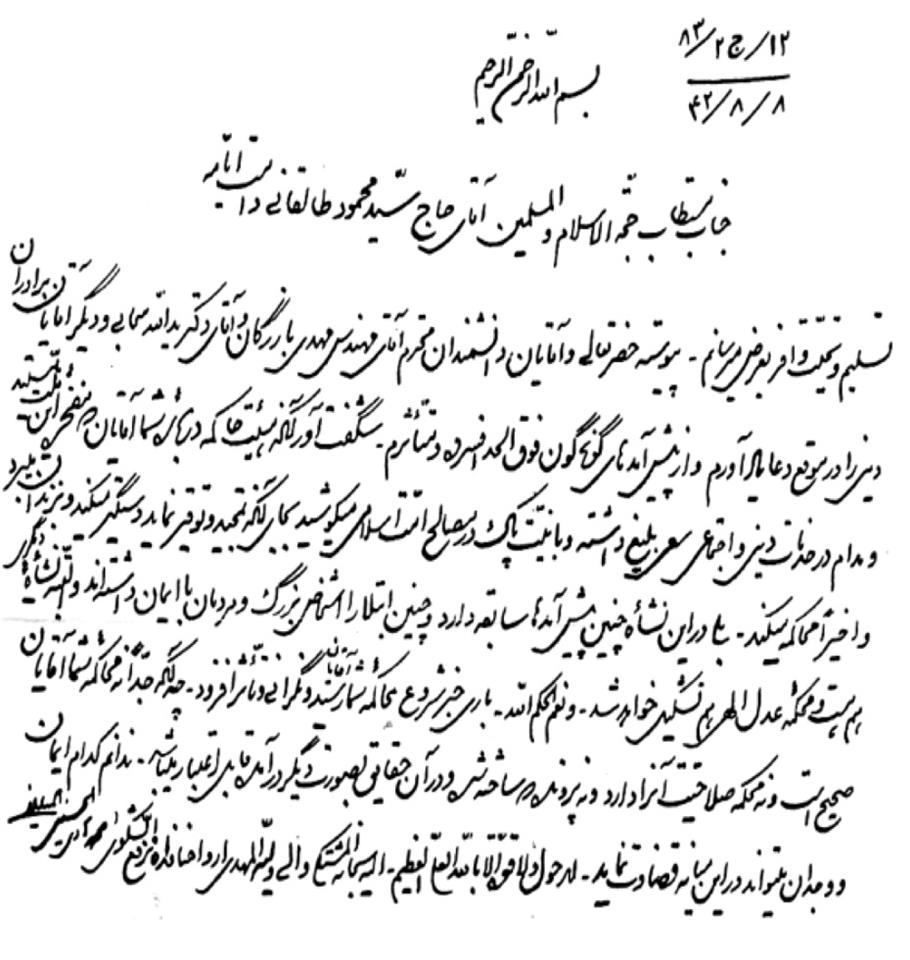 ۱۲/ج۲/۸۳
۴۲/۸/۸
بسم الله الرحمن الرحیم
جناب مستطاب حجة الاسلام والمسلمین آقای حاج سید محمود طالقانی دامت ایامه
تسلیم و تحیت وافر بعرض میرسانم - پیوسته حضرتعالی و آقایان دانشمندان محترم آقای مهندس مهدی بازرگان و آقای دکتر یدالله سحابی و دیگر آقایان آن برادران
دینی را در موقع دعا بیاد آورم و از پیش آمدهای گوناگون فوق الحد افسرده و متأثرم - شگفت آور آنکه نسبت ها که درباره شما آقایان مفخر این ملت میدهند
و مدام در خدمات دینی و اجتماعی سعی بلیغ داشته و با نیت پاک در مصالح امت اسلامی میکوشید بجای آنکه تمجید و توقیر نماید دستگیر میکنند و بزندان میبرد
و اخیراً محاکمه میکنند - بلی در این نشأه چنین پیش آمدها سابقه دارد و چنین ابتلا را اشخاص بزرگ و مردمان با ایمان داشته اند و البته نشأه دیگری
هم هست و محکمه عدل الهی هم تشکیل خواهد شد - و نعم الحکم الله - باری خبر شروع محاکمه شما رسید و نگرانی و تأثر افزود - چه آنکه نه محاکمه شما آقایان
صحیح است و نه محکمه صلاحیت آنرا دارد و نه پرونده ساخته شده و در آن حقایق بصورت دیگر درآمده قابل اعتبار میباشد - ندانم کدام ایمان
و وجدان میتواند در این میانه قضاوت نماید - لاحول ولا قوة الا بالله العلی العظیم - الیه سبحانه المشتکی والی ولیه المهدی ارواحنا فداه نرفع الشکوی
الحسینی المیلانی